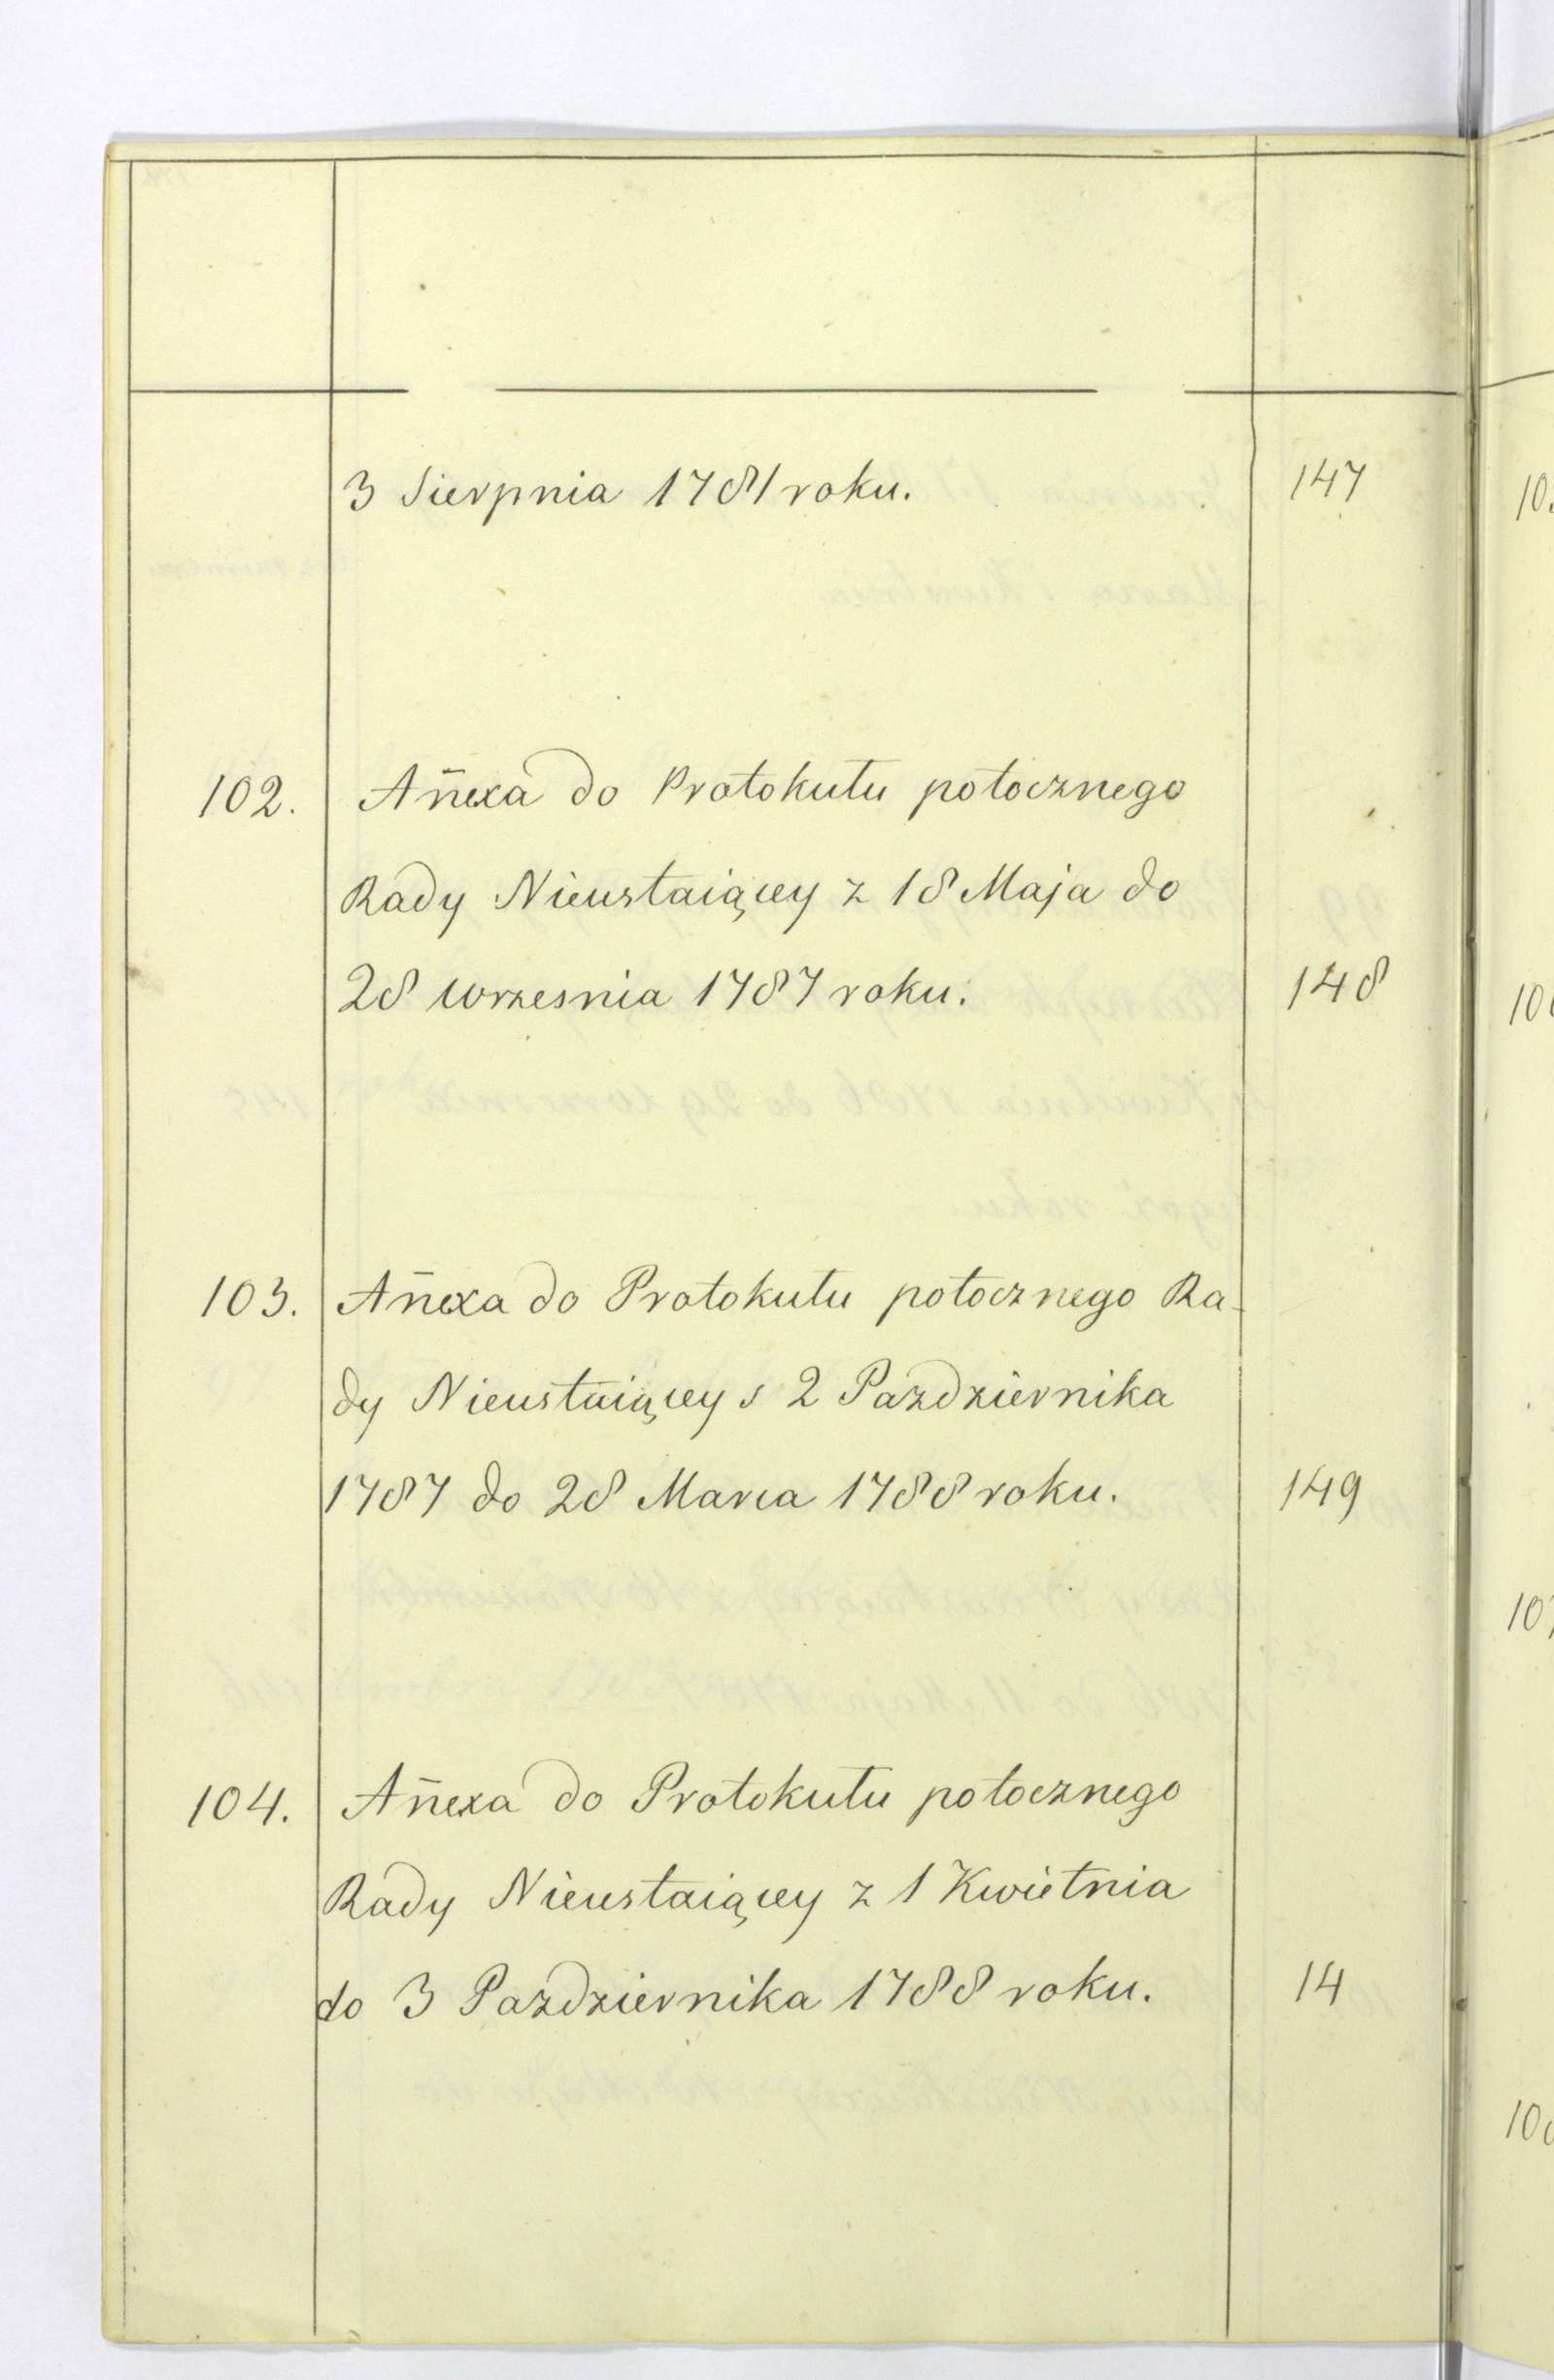 3 Sierpnia 1781 roku. 147
102. Añexa do Protokułu potocznego
Rady Nieustaiącey z 18 Maja do
28 wrzesnia 1787 roku. 148
103. Añexa do Protokułu potocznego Ra-
dy Nieustaiącey s 2 Pazdziernika
1787 do 28 Marca 1788 roku. 149
104. Añexa do Protokułu potocznego
Rady Nieustaiącey z 1 Kwietnia
do 3 Pazdziernika 1788 roku. 14